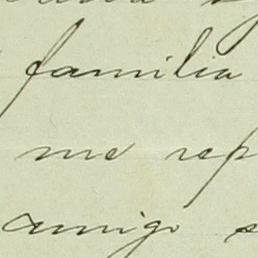 familia
me rep
amigo s